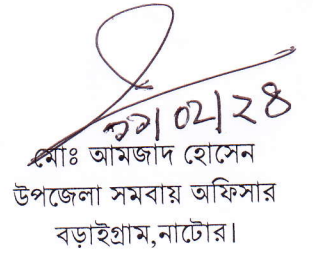 ২২/০২/২৪
মোঃ আমজাদ হোসেন
উপজেলা সমবায় অফিসার
বড়াইগ্রাম,নাটোর।